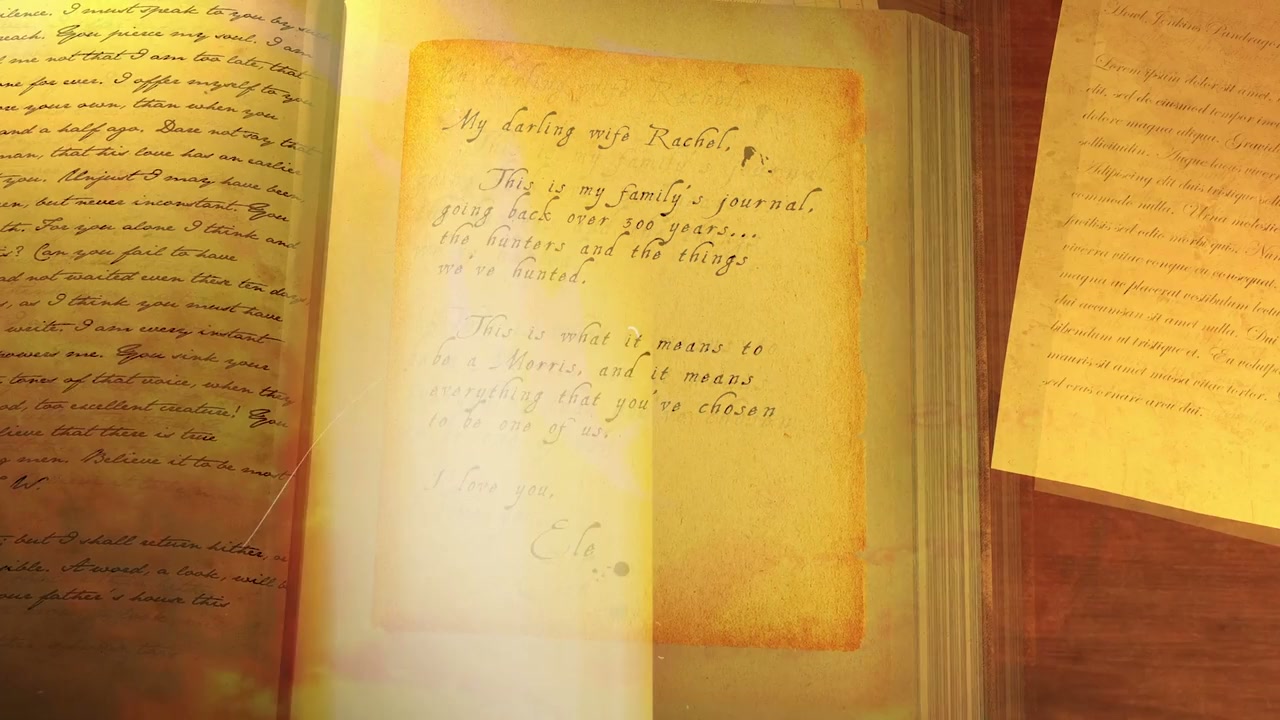 silence. I must speak to you by such
reach. You pierce my soul. I am
me not that I am too late, that
one for ever. I offer myself to you
ore your own, than when you
and a half ago. Dare not say that
man, that his love has an earlier
you. Unjust I may have been,
en, but never inconstant. You
th. For you alone I think and
s? Can you fail to have
ad not waited even these ten days,
s, as I think you must have
write. I am every instant
powers me. You sink your
tones of that voice, when they
od, too excellent creature! You
lieve that there is true
g men. Believe it to be most
W.
; but I shall return hither, or
sible. A word, a look, will be
our father's house this
My darling wife Rachel,
This is my family's journal,
going back over 300 years...
the hunters and the things
we've hunted.
This is what it means to
be a Morris, and it means
everything that you've chosen
to be one of us.
I love you,
Ele
Howl Jenkins Pendragon
Lorem ipsum dolor sit amet,
elit, sed do eiusmod tempor inci
dolore magna aliqua. Gravid
sollicitudin. Augue lacus viverr
Adipiscing elit duis tristique s
commodo nulla. Urna molestie
facilisis sed odio morbi quis. Nun
viverra vitae congue eu consequat.
magna ac placerat vestibulum lectu
dui accumsan sit amet nulla. Dui
bibendum at tristique et. Eu volutpa
mauris sit amet massa vitae tortor.
sed cras ornare arcu dui.